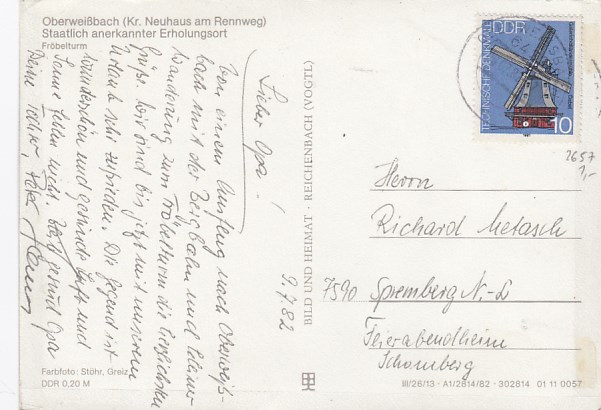 Oberweißbach (Kr. Neuhaus am Rennweg)
Staatlich anerkannter Erholungsort
Fröbelturm
Lieber Opa!
Von einem Ausflug nach Oberweiß-
bach mit der Bergbahn und kleiner
Wanderung zum Fröbelturm die herzlichsten
Grüße. Wir sind bis jetzt mit unserem
Urlaub sehr zufrieden. Die Gegend ist
wunderschön und gesunde Luft und
Sonne fehlen nicht. Bleib gesund Opa
Deine
9.7.82
BILD UND HEIMAT · REICHENBACH (VOGTL)
TECHNISCHE DENKMALE
DDR
10
2657
1,-
Herrn
Richard Metasch
7590 Spremberg N.-L
Feierabendheim
Schomberg
Farbfoto: Stöhr, Greiz
DDR 0,20 M
III/26/13 · A1/2814/82 · 302814 01 11 0057